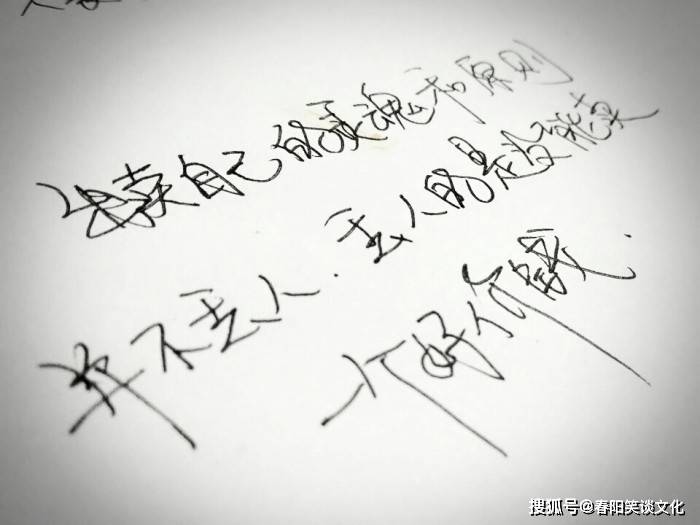 出卖自己的灵魂和原则
并不丢人．丢人的是没能卖
一个好价钱．
搜狐号@春阳笑谈文化